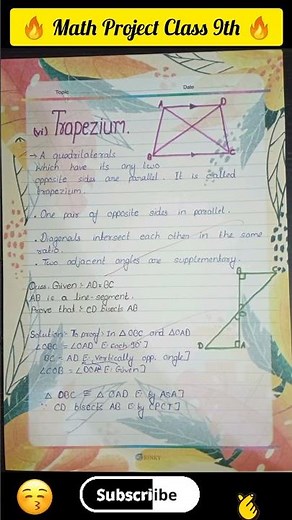 🔥 Math Project Class 9th 🔥
Topic Date
(vi) Trapezium.
A D
B C
→ A quadrilaterals
which have its any two
opposite sides are parallel. It is called
trapezium.
• One pair of opposite sides in parallel.
• Diagonals intersect each other in the same
ratio.
• Two adjacent angles are supplementary.
Ques. Given :- AD = BC
AB is a line-segment.
Prove that :- CD bisects AB
B C
O
D A
Solution:- To proof :- In △ OBC and △OAD
∠OBC = ∠OAD [: Each 90°]
BC = AD [: Vertically opp. angle]
∠COB = ∠DOA [: Given]
△ OBC ≅ △ OAD [: by ASA]
∴ CD bisects AB [: by CPCT]
Subscriibe